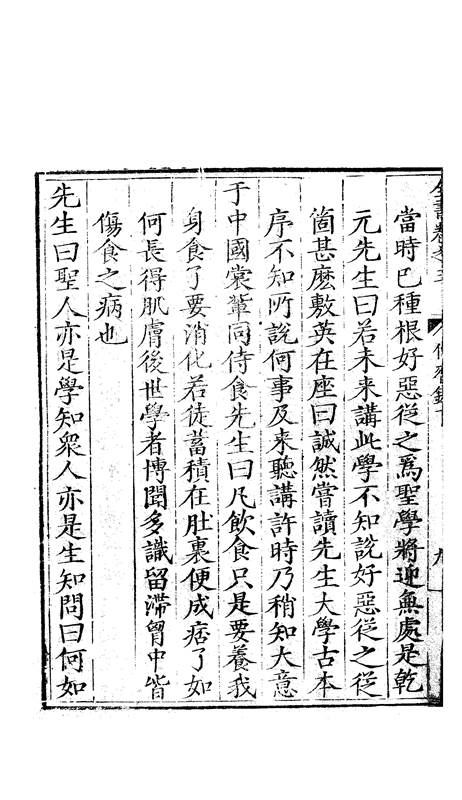 當時已種根好惡從之為聖學將迎無處是乾
元先生曰若未来講此學不知說好惡從之從
箇甚麽敷英在座曰誠然嘗讀先生大學古本
序不知所說何事及来聽講許時乃稍知大意
于中國裳輩同侍食先生曰凡飲食只是要養我
身食了要消化若徒蓄積在肚裏便成痞了如
何長得肌膚後世學者博聞多識留滯胷中皆
傷食之病也
先生曰聖人亦是學知衆人亦是生知問曰何如